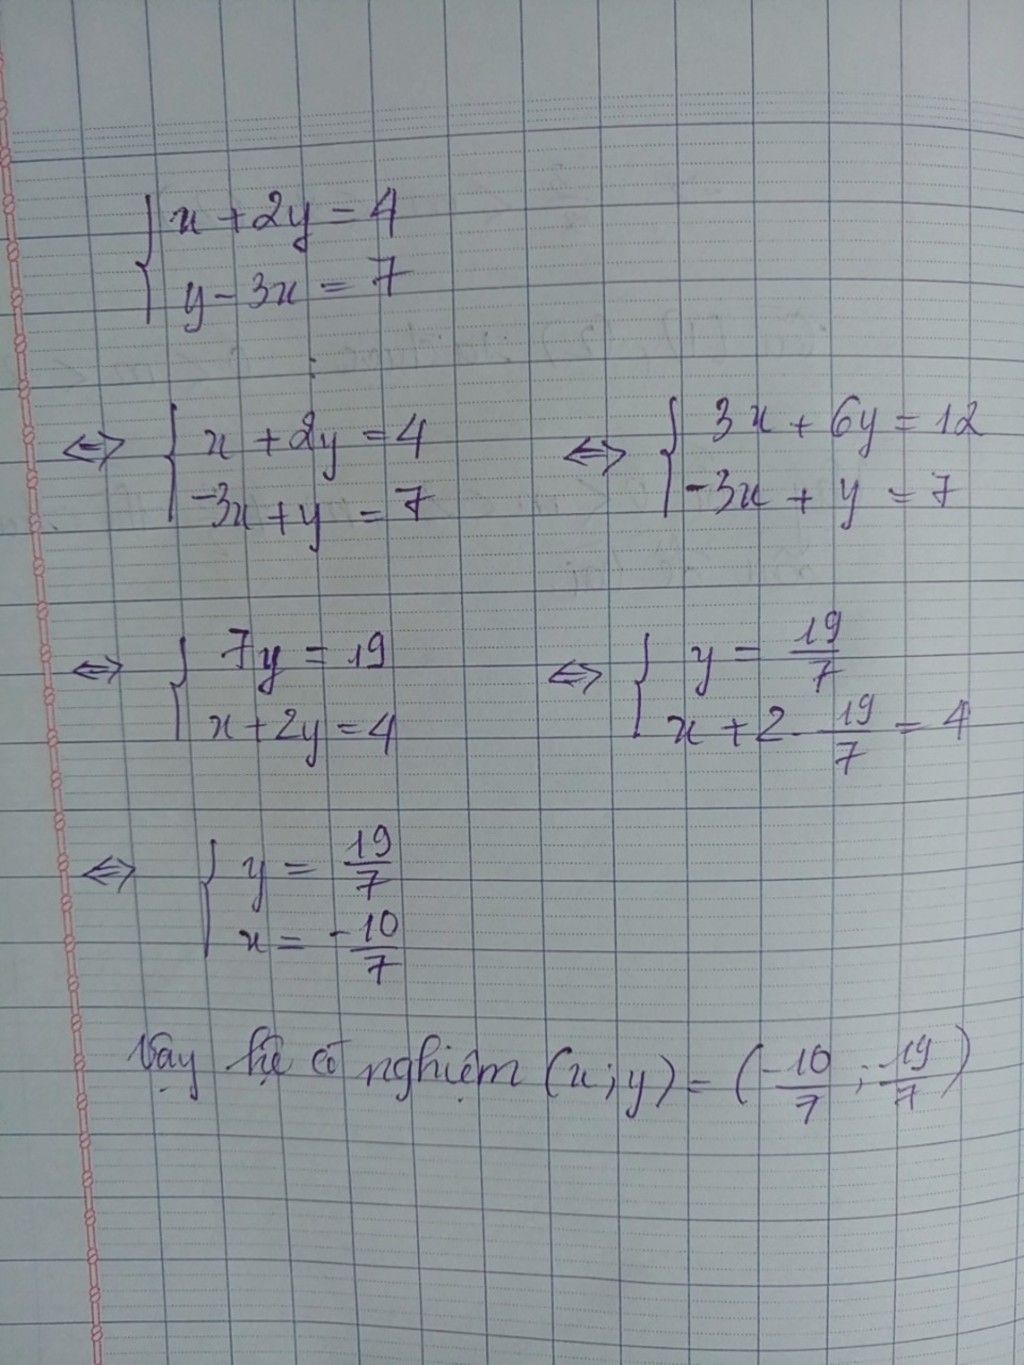 { x + 2y = 4
y - 3x = 7
⇔ { x + 2y = 4
-3x + y = 7
⇔ { 3x + 6y = 12
-3x + y = 7
⇔ { 7y = 19
x + 2y = 4
⇔ { y = 19/7
x + 2 . 19/7 = 4
⇔ { y = 19/7
x = -10/7
Vậy hệ có nghiệm (x; y) = (-10/7 ; 19/7)